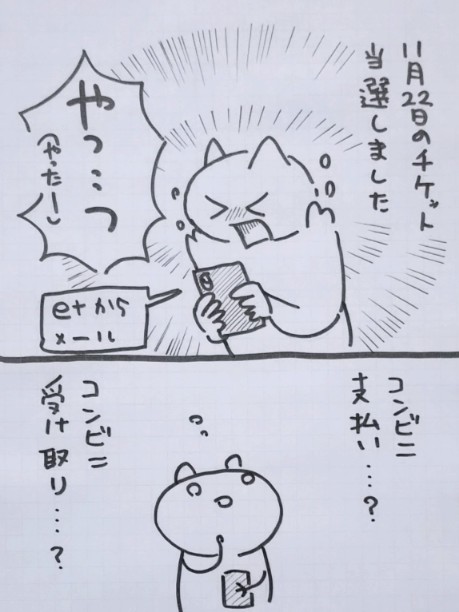 11月22日のチケット
当選しました
やっっっ
(やったー)
e+から
メール
コンビニ
支払い…?
コンビニ
受け取り…?